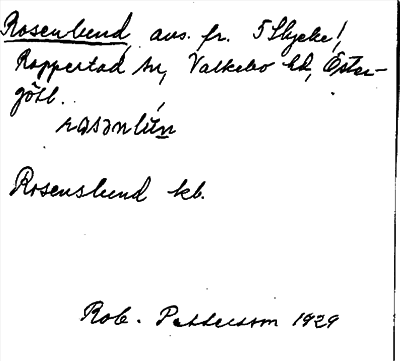 Rosenlund, avs. fr. 5 Stycke,
Rappestad sn, Valkebo hd, Öster-
götl.
rɷsənlún
Rosenslund kb.
Rob. Pettersson 1929